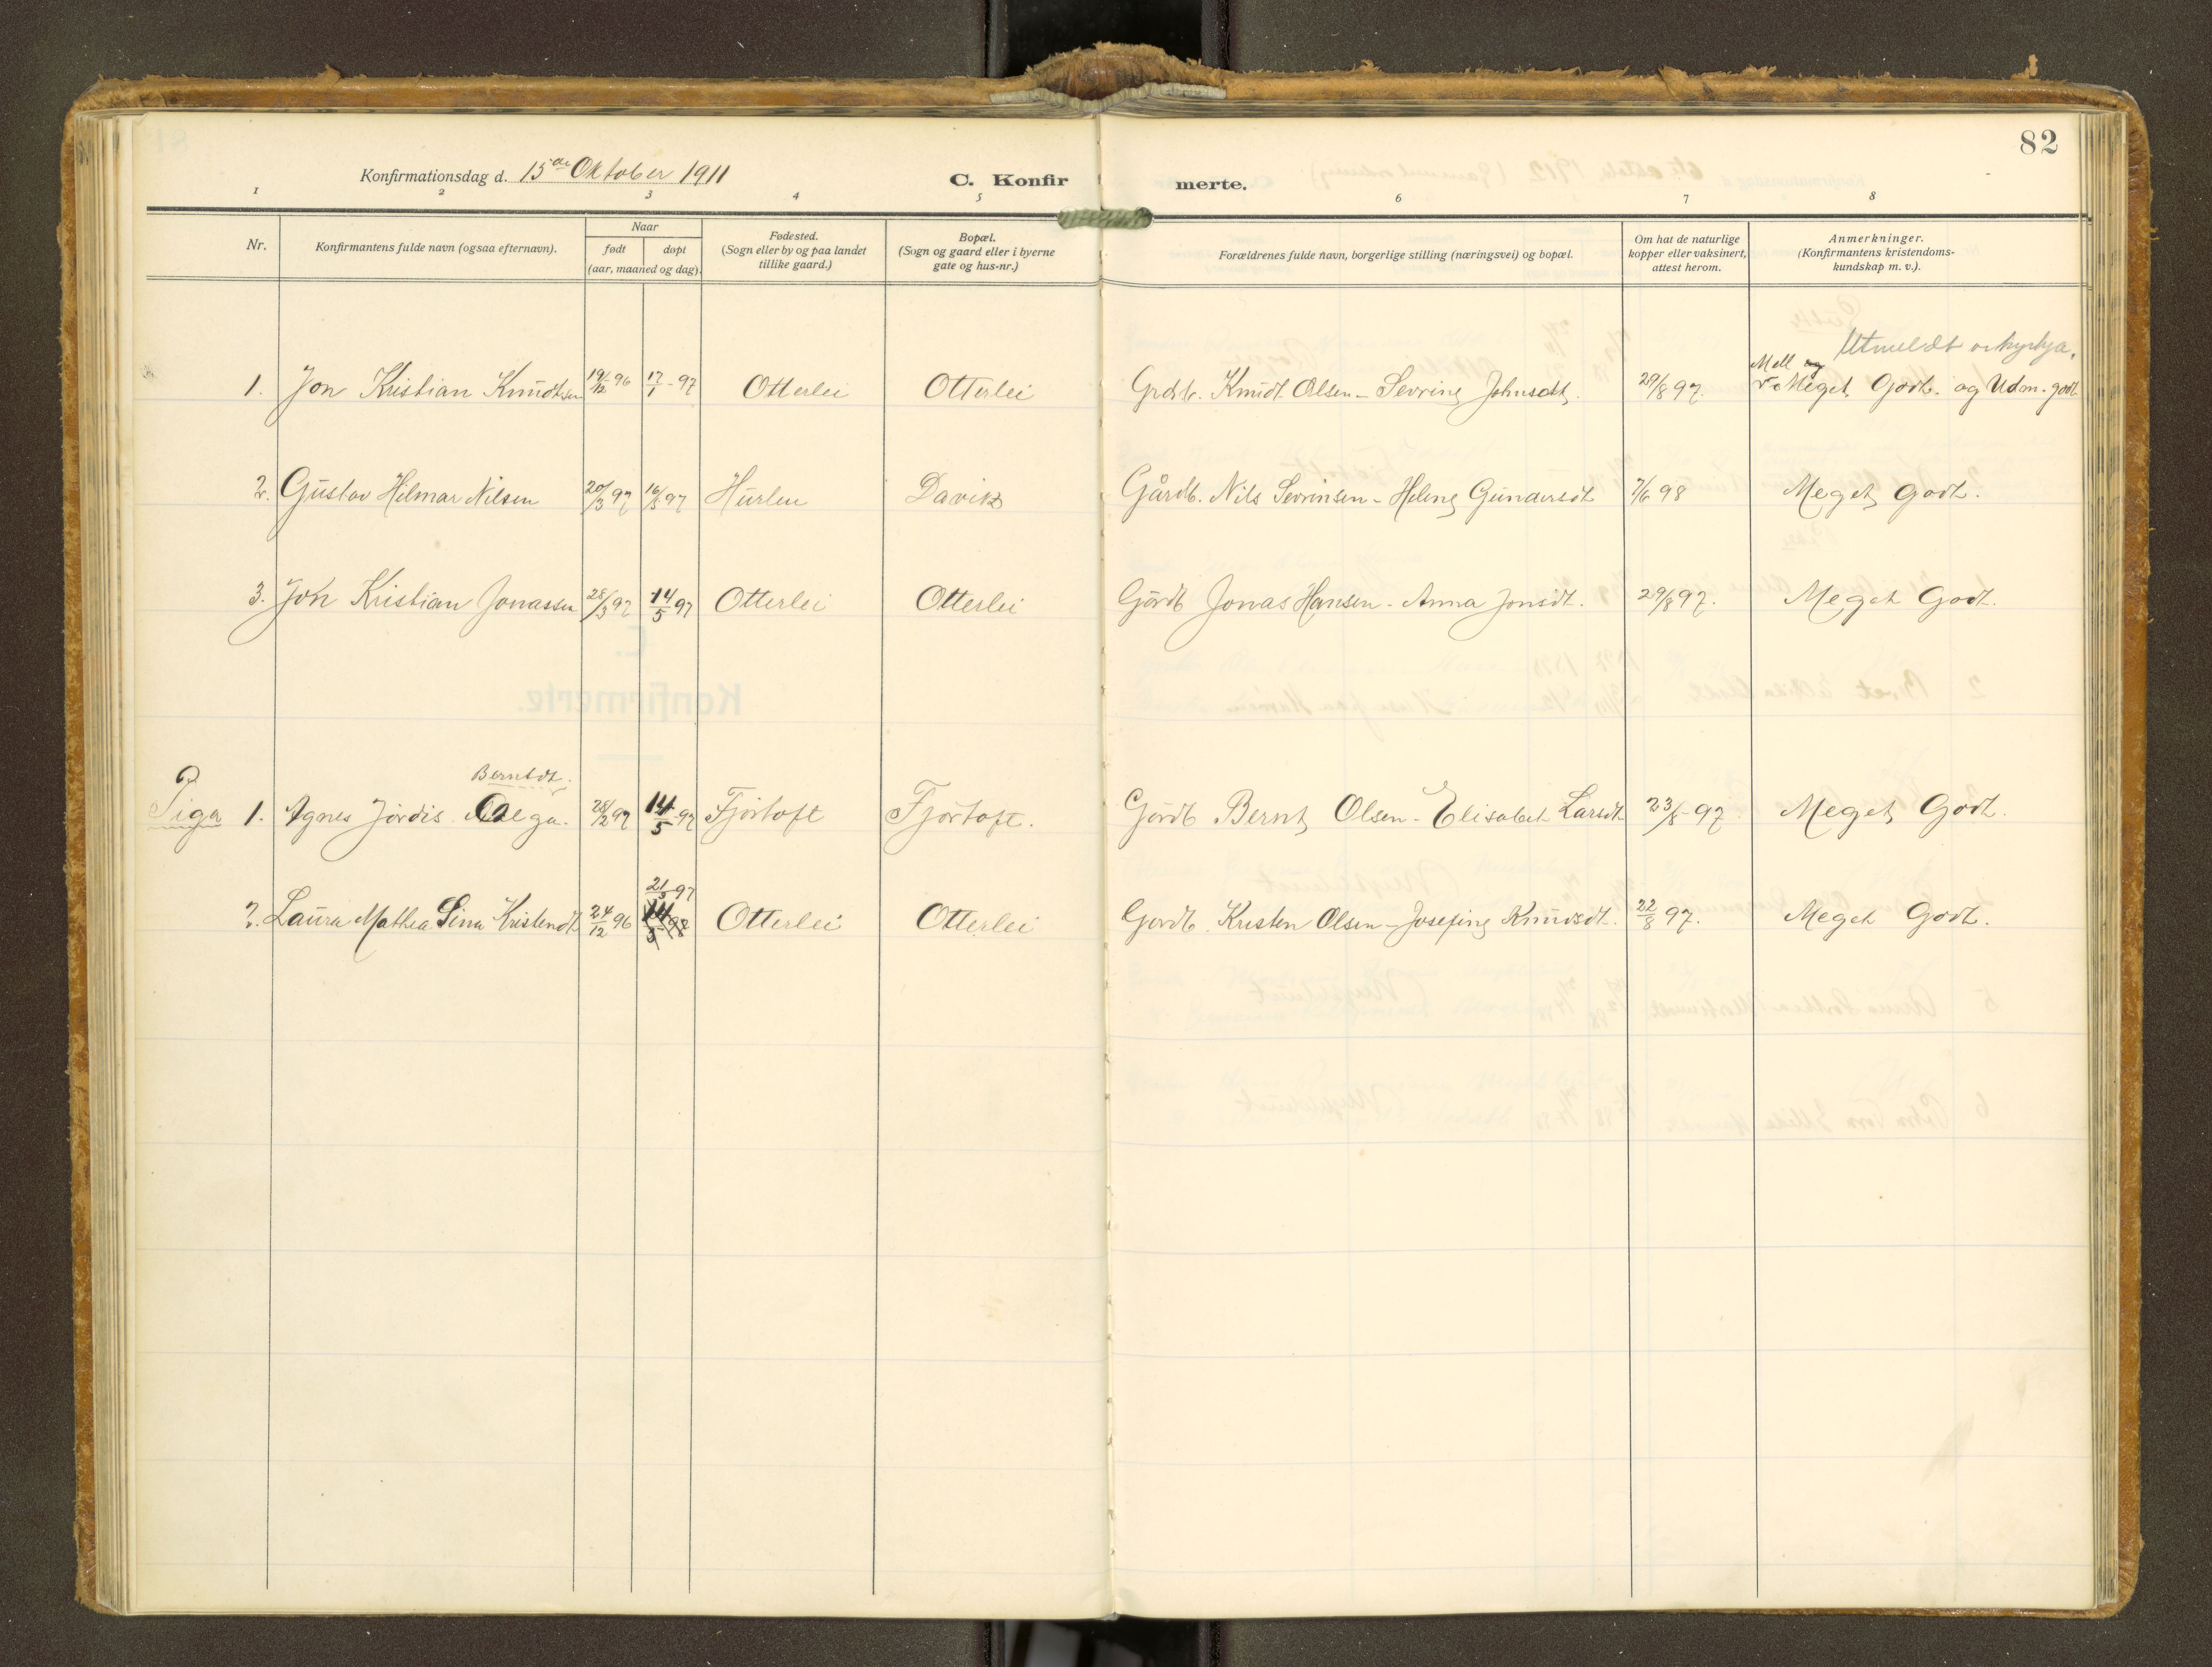 82
Konfirmationsdag d. 15de Oktober 1911
C. Konfirmerte.
1 2 3 4 5 6 7 8
Nr.
Konfirmantens fulde navn (ogsaa efternavn).
Naar
født døpt
(aar, maaned og dag).
Fødested.
(Sogn eller by og paa landet
tillike gaard.)
Bopæl.
(Sogn og gaard eller i byerne
gate og hus-nr.)
Forældrenes fulde navn, borgerlige stilling (næringsvei) og bopæl.
Om hat de naturlige
kopper eller vaksinert,
attest herom.
Anmerkninger.
(Konfirmantens kristendoms-
kundskap m. v.).
Utmeldt or kyrkja.
Mell og
1. Jon Kristian Knudtsen 19/12 96 17/1-97 Otterlei Otterlei Grdb. Knudt Olsen - Sevrine Johnsdt. 29/8 97. Meget Godt. og Udm. godt
2. Gustav Hilmar Nilsen 20/3 97 16/5 97 Hurlen Davik Gårdb. Nils Sevrinsen - Helene Gundersdt 7/6 98 Meget Godt.
3. Jon Kristian Jonassen 28/3 97 14/5 97 Otterlei Otterlei Gårdb Jonas Hansen - Anna Jonsdt. 29/8 97. Meget Godt.
Berntdt.
Piga 1. Agnes Jördis Olega. 28/2 97 14/5-97 Fjörtoft Fjörtoft. Gårdb Bernt Olsen - Elisabet Larsdt 23/8-97 Meget Godt.
21/3 97
2. Laura Mathea Lina Kristendt 24/12 96 14/5 98 Otterlei Otterlei Gårdb. Kristen Olsen - Josefine Knudsdt. 22/8 97. Meget Godt.